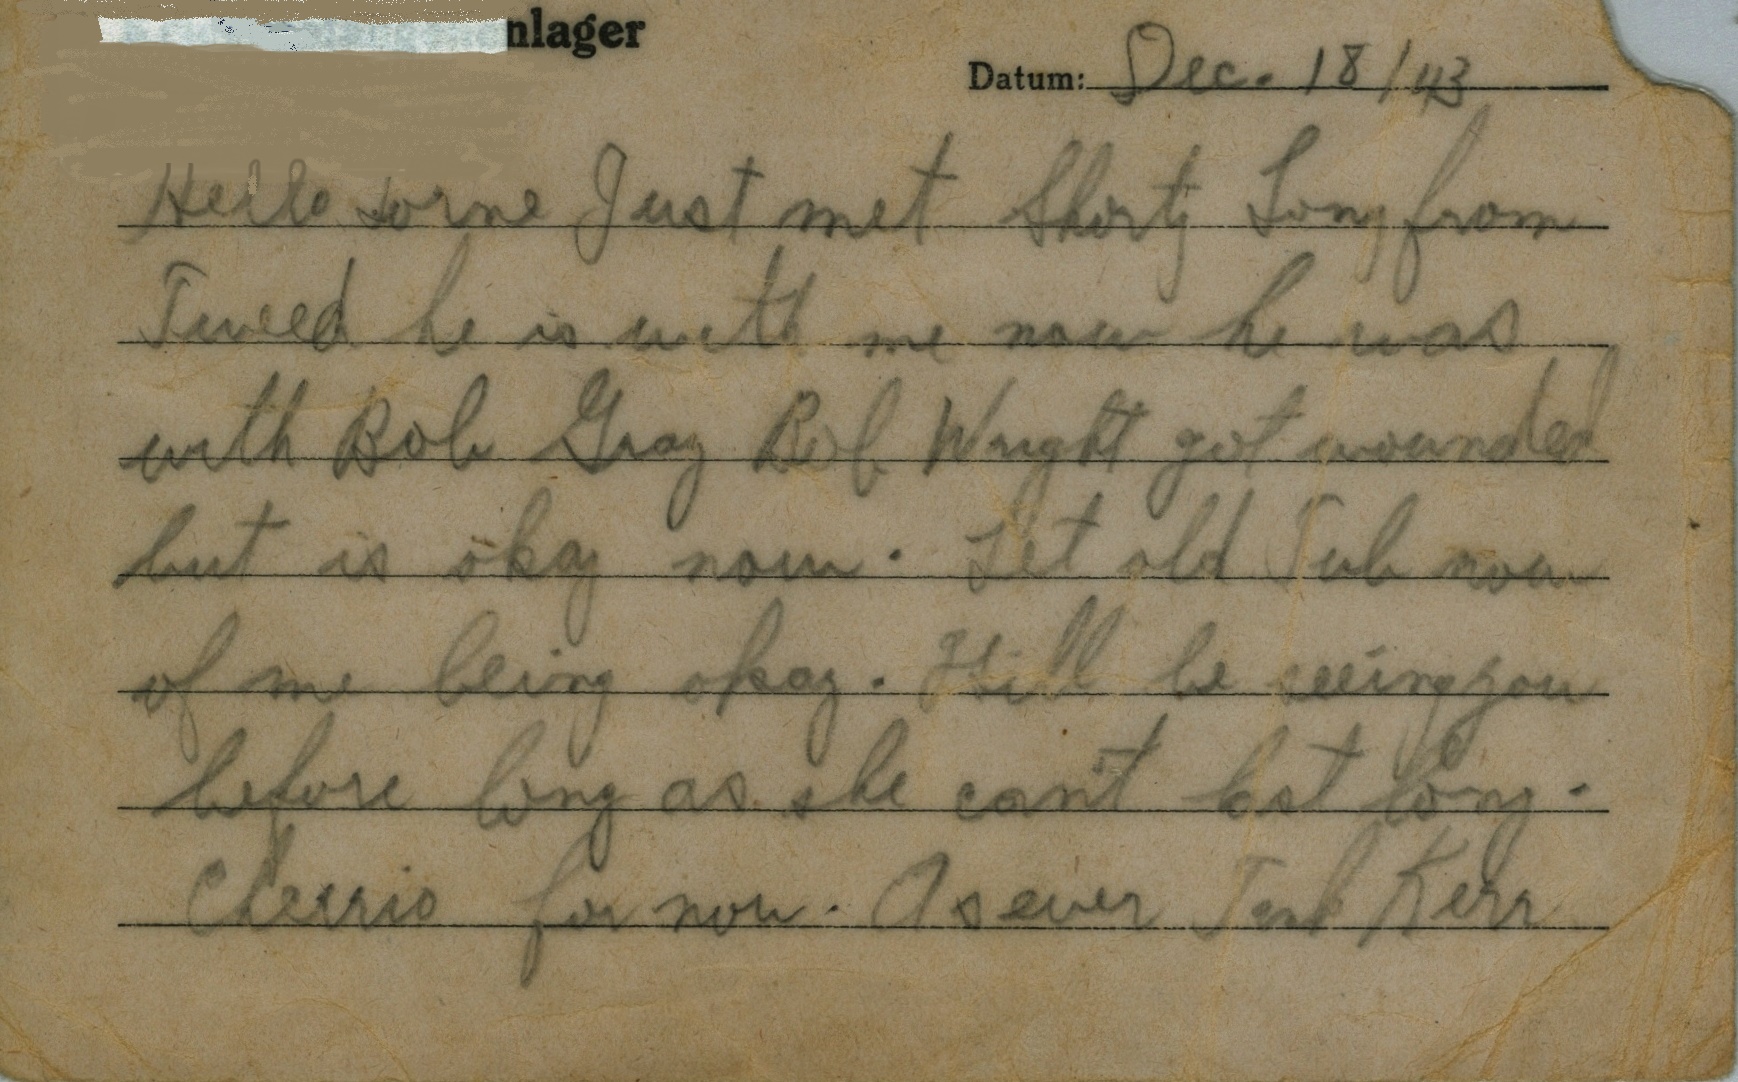 nlager
Datum: Dec. 18/43
Hello Lorne Just met Shorty Long from
Tweed he is with me now he was
with Bob Gray Bob Wright got wounded
but is okay now. Let old Tub now
of me being okay. Will be seeing you
before long as she can't last long.
Cherrio for now. As ever Kerr